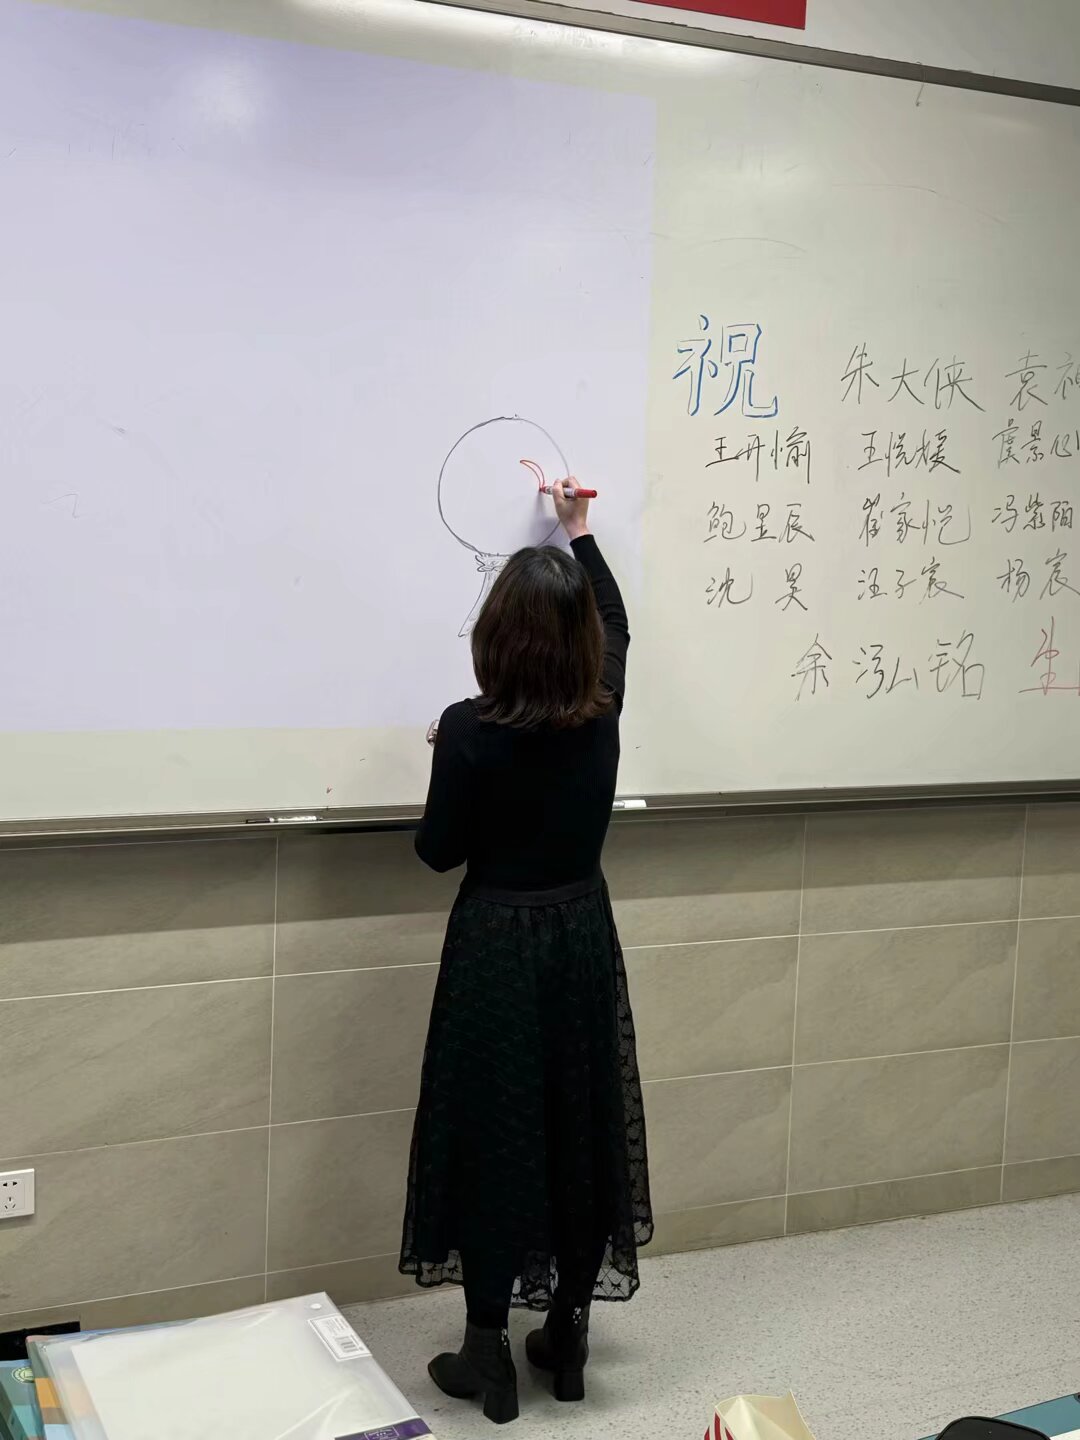 祝 朱大侠 袁神
王开愉 王悦媛 虞景
鲍昱辰 崔家恺 冯紫
沈昊 汪子宸 杨宸
余泓铭 生